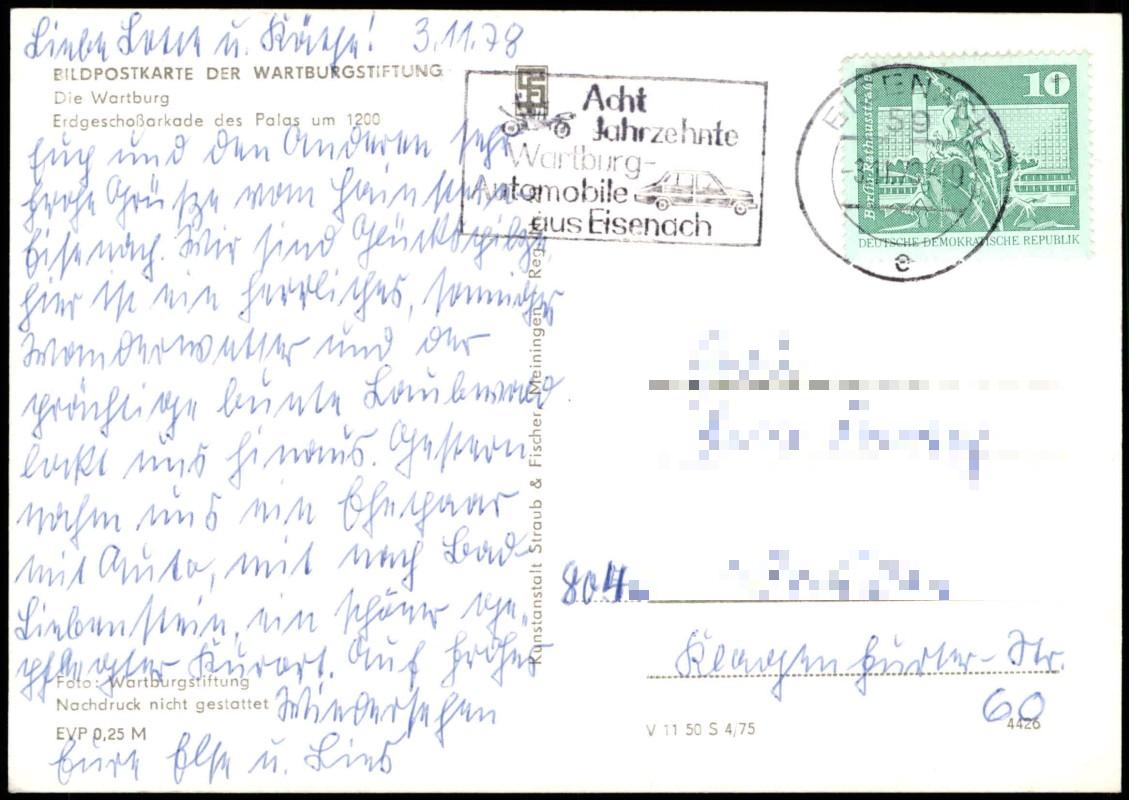 Liebe Lotte u. Käthe! 3.11.78
BILDPOSTKARTE DER WARTBURGSTIFTUNG
Die Wartburg
Erdgeschoßarkade des Palas um 1200
Euch und den Anderen sehr
frohe Grüße vom Hainstein
Eisenach. Wir sind Glückspilze,
hier ist ein herrliches, sonniges
Wanderwetter und der
prächtige bunte Laubwald
lockt uns hinaus. Gestern
nahm uns ein Ehepaar
mit Auto, mit nach Bad-
Liebenstein, ein schöner ge-
pflegter Kurort. Auf frohes
Wiedersehen
Eure Else u. Lies
Foto: Wartburgstiftung
Nachdruck nicht gestattet
EVP 0,25 M
Kunstanstalt Straub & Fischer, Meiningen
Acht
Jahrzehnte
Wartburg-
Automobile
aus Eisenach
EISENACH
59
e
10
DEUTSCHE DEMOKRATISCHE REPUBLIK
804
Klagenfurter-Str.
60
V 11 50 S 4/75
4426